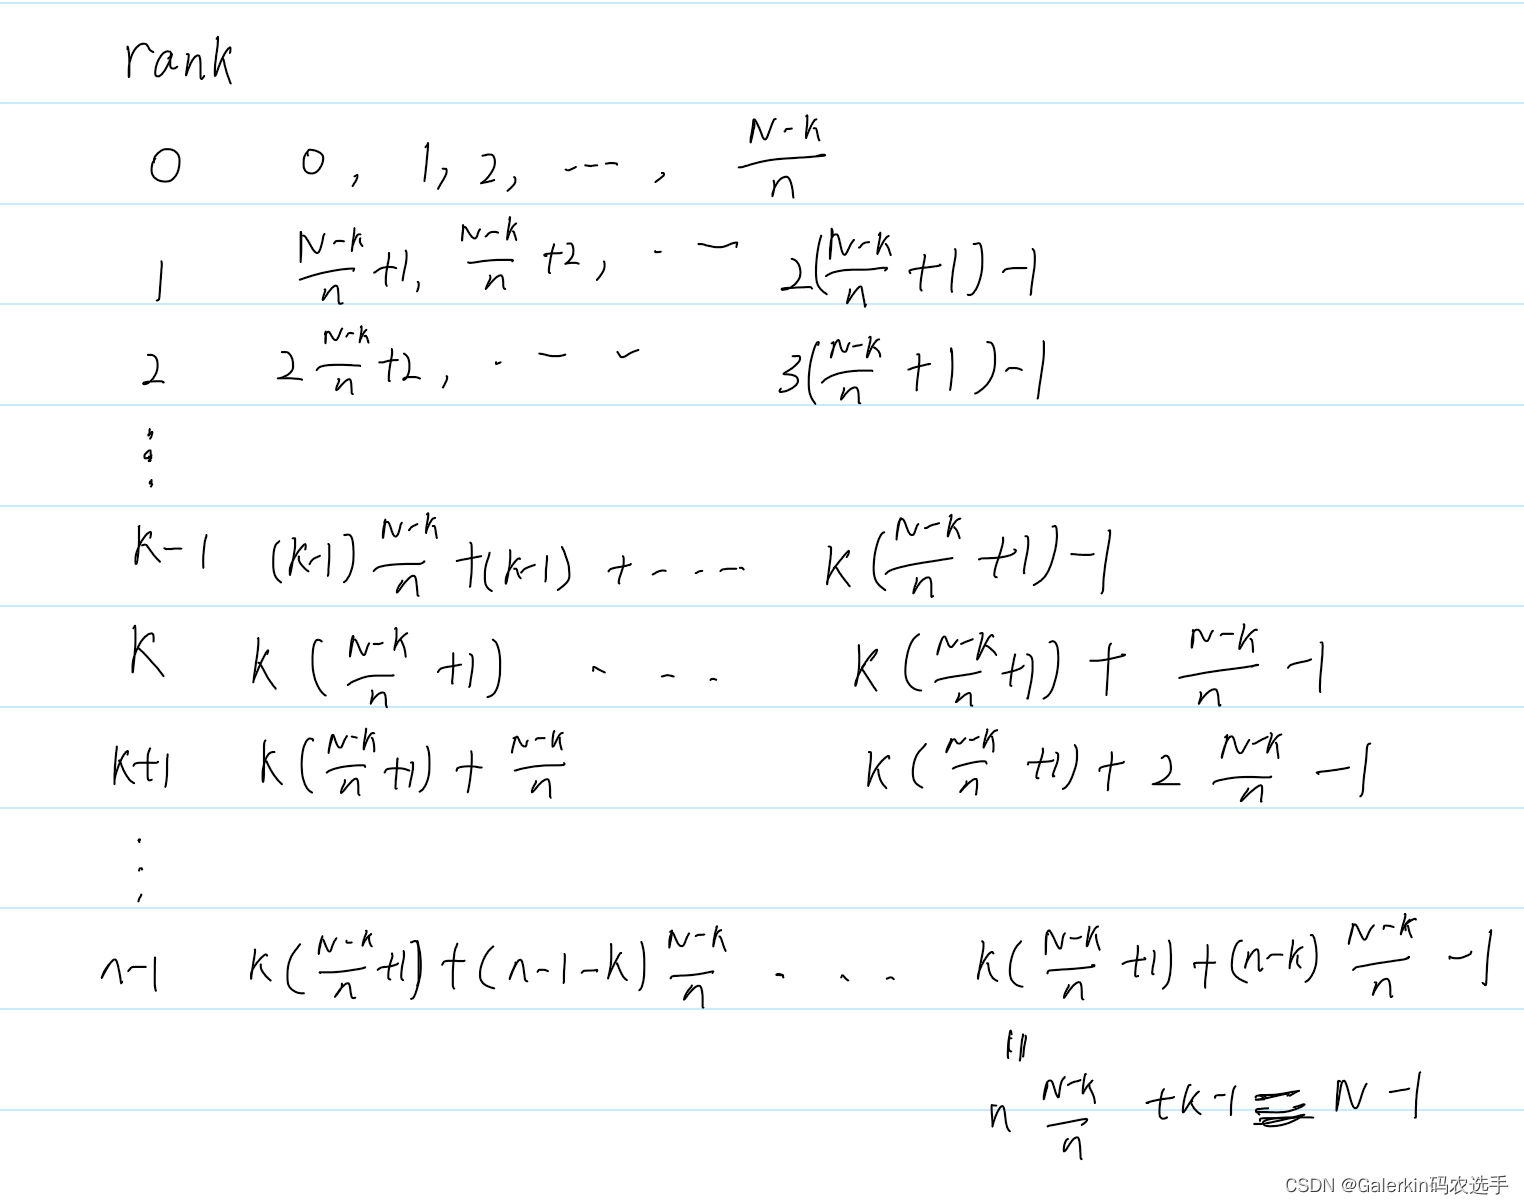 rank
0 0, 1, 2, ---, \frac{N-k}{n}
1 \frac{N-k}{n}+1, \frac{N-k}{n}+2, ·-- 2(\frac{N-k}{n}+1)-1
2 2\frac{N-k}{n}+2, ·-- 3(\frac{N-k}{n}+1)-1
⋮
k-1 (k-1)\frac{N-k}{n}+(k-1) +---- k(\frac{N-k}{n}+1)-1
k k(\frac{N-k}{n}+1) ... k(\frac{N-k}{n}+1)+\frac{N-k}{n}-1
k+1 k(\frac{N-k}{n}+1)+\frac{N-k}{n} k(\frac{N-k}{n}+1)+2\frac{N-k}{n}-1
⋮
n-1 k(\frac{N-k}{n}+1)+(n-1-k)\frac{N-k}{n} ... k(\frac{N-k}{n}+1)+(n-k)\frac{N-k}{n}-1
=
n\frac{N-k}{n}+k-1 = N-1
CSDN @Galerkin码农选手